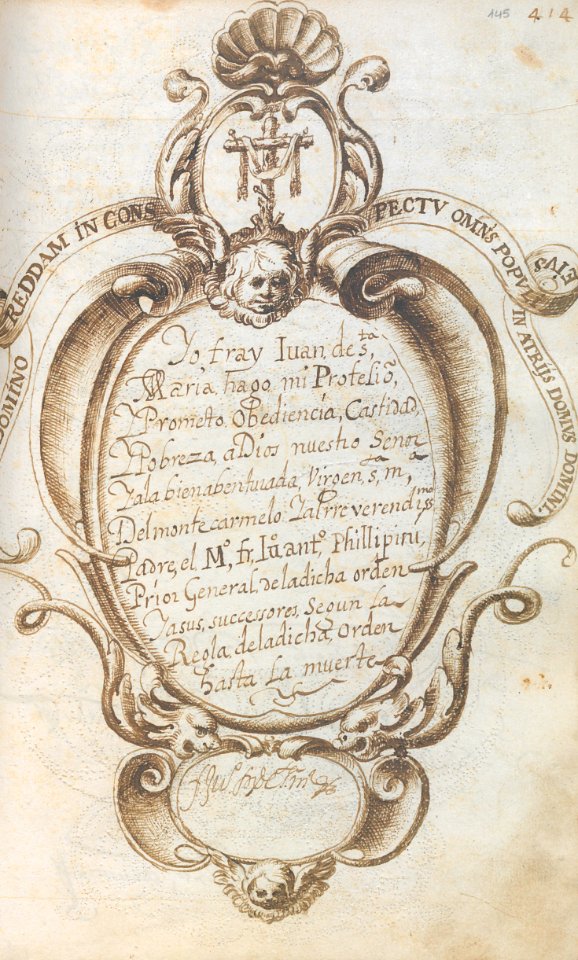 445 414
DOMINO REDDAM IN CONS PECTV OMNS POPVLI EIVS
IN ATRIIS DOMVS DOMINI.
Yo, fray Iuan, de sta,
Maria, hago, mi Profesiō,
Y Prometo, Obediencia, Castidad,
Y Pobreza, a Dios nuestro Señor
Y a la bienabenturada, Virgen, sta, ma,
Del monte carmelo. Y al rreverendissmo
Padre, el Mo, fr, Iuo, anto, Phillipinu,
Prior General, de la dicha orden
Y a sus, successores, Segun La
Regla, de la dicha, Orden
hasta La muerte